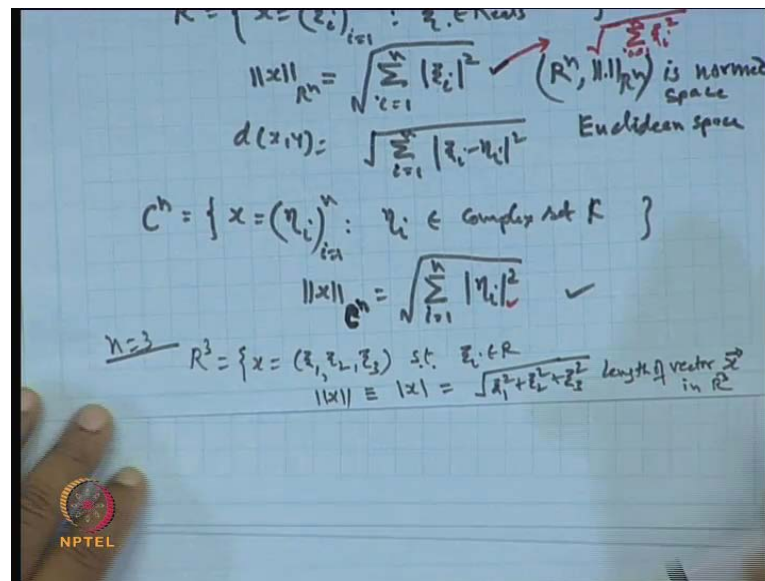 Rⁿ = { x = (ξᵢ)ᵢ₌₁ : ξᵢ ∈ Reals }
√∑ξᵢ²
||x||_Rⁿ = √∑ᵢ₌₁ⁿ |ξᵢ|² ✓ → (Rⁿ, ||.||_Rⁿ) is normed space
d(x,y) = √∑ᵢ₌₁ⁿ |ξᵢ-ηᵢ|² Euclidean space
Cⁿ = { x = (ηᵢ)ᵢ₌₁ⁿ : ηᵢ ∈ complex set K }
||x||_Cⁿ = √∑ᵢ₌₁ⁿ |ηᵢ|² ✓
n=3 R³ = { x = (ξ₁, ξ₂, ξ₃) s.t. ξᵢ ∈ R
||x|| ≡ |x| = √ξ₁²+ξ₂²+ξ₃² Length of vector x⃗ in R³
NPTEL